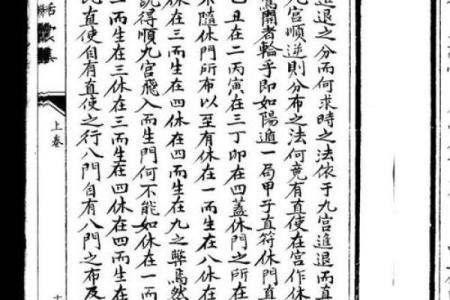 進退之分而何求時之法依于九宮進退而直
九宮順逆則分布之法何竟有直使在宮作休
者輪乎即如陽遁一局甲子直符休門直
丑在二丙寅在三丁卯在四蓋休門之所在
不隨休門所布以至有休在一而生在八休在
休在三而生在四休在四而生在九之弊焉然
說得順九宮飛入而生門何不能如休在一而
二而生在三休在三而生在四休在四而生在
直使自有直使之行八門自有八門之布及
上卷